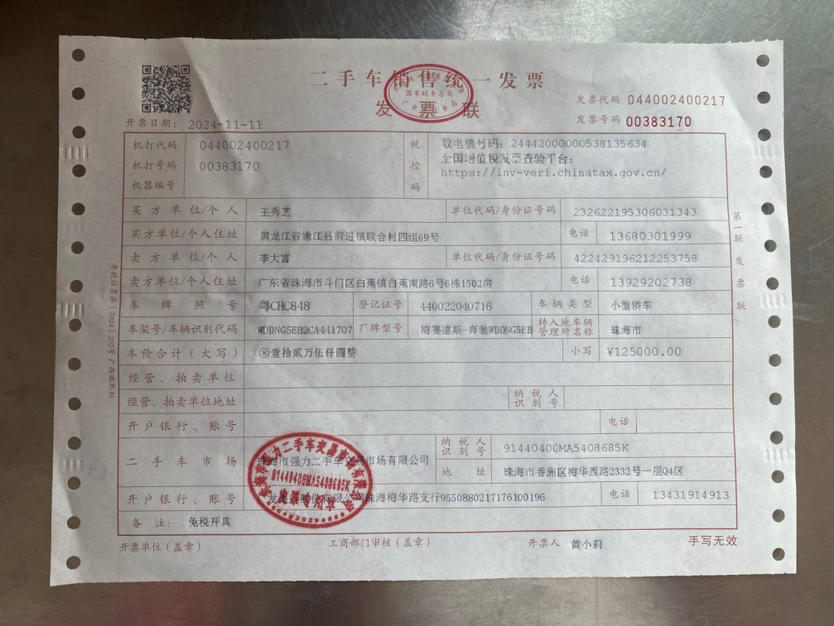 二手车销售统一发票
国家税务总局
发票联
发票代码 044002400217
发票号码 00383170
开票日期: 2024-11-11
机打代码 044002400217
机打号码 00383170
机器编号
税控码
数电票号码：24442000000538135634
全国增值税发票查验平台：
https://inv-veri.chinatax.gov.cn/
买方单位/个人 王秀芝 单位代码/身份证号码 232622195306031343
买方单位/个人住址 黑龙江省嫩江县前进镇联合村四组69号 电话 13680301999
卖方单位/个人 李大富 单位代码/身份证号码 422429196212253758
卖方单位/个人住址 广东省珠海市斗门区白蕉镇白蕉南路6号6栋1502房 电话 13929202738
车牌照号 粤CHC848 登记证号 440022040716 车辆类型 小型轿车
车架号/车辆识别代码 WDDNG5EB2CA441707 厂牌型号 梅赛德斯-奔驰WDDNG5EB 转入地车辆管理所名称 珠海市
车价合计（大写） ⊗壹拾贰万伍仟圆整 小写 ¥125000.00
经营、拍卖单位
经营、拍卖单位地址 纳税人识别号
开户银行、账号 电话
二手车市场 珠海市强力二手车交易市场有限公司 纳税人识别号 91440400MA5408685K
地址 珠海市香洲区梅华西路2332号一层Q4区
开户银行、账号 珠海梅华路支行9550880217176100196 电话 13431914913
备注: 免税开具
开票单位（盖章） 工商部门审核（盖章） 开票人 黄小莉 手写无效
第一联 发票联
珠海市强力二手车交易市场有限公司
91440400MA5408685K
发票专用章